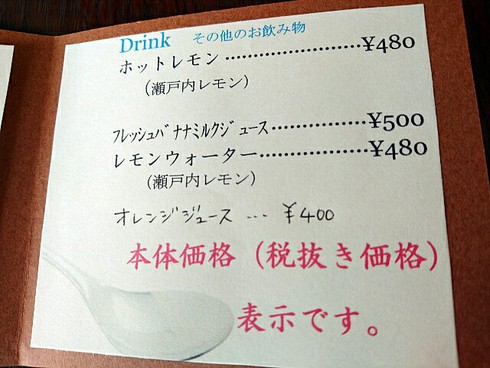 Drink その他のお飲み物
ホットレモン……………………¥480
(瀬戸内レモン)
フレッシュバナナミルクジュース……………¥500
レモンウォーター………………¥480
(瀬戸内レモン)
オレンジジュース … ¥400
本体価格(税抜き価格)
表示です。